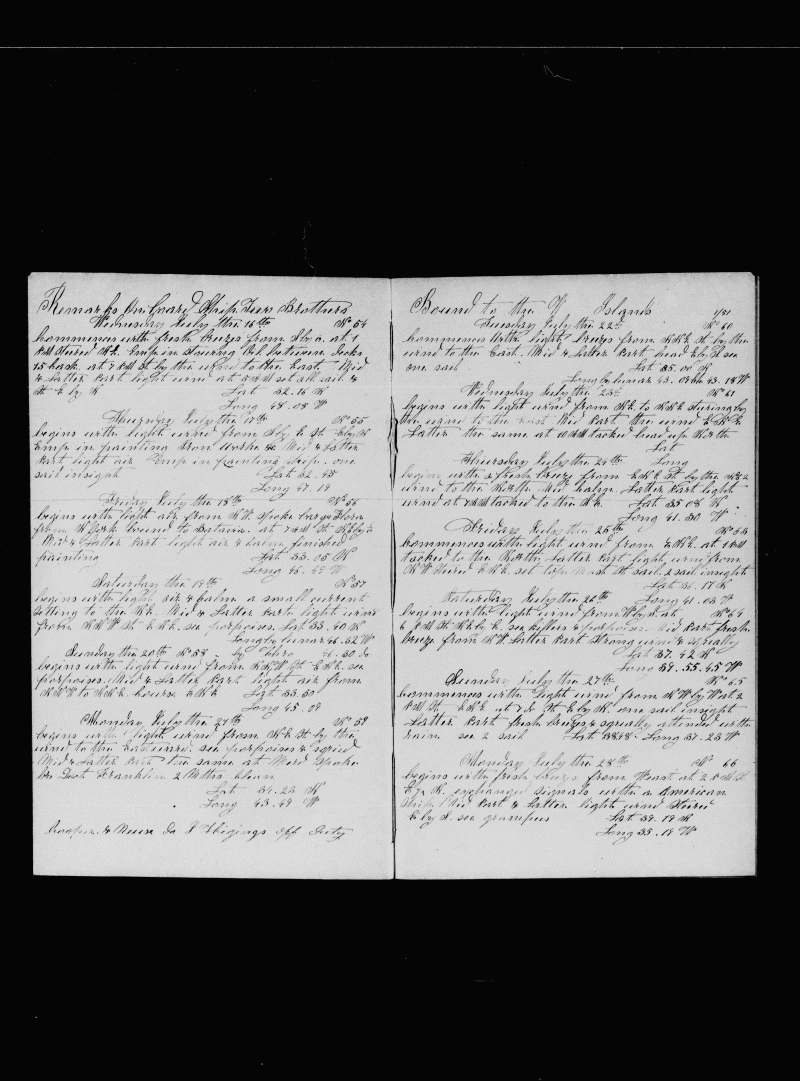 Remarks On board Ship Two Brothers
Wednesday July the 16th No 54
Commences with fresh breeze from S by W. at 1
P.M Steered N.E. Emp in stowing Oil between Decks
15 bask. at 7 P.M St by the wind to the East. Mid
& Latter Part light wind at 5 A M set all sail. &
St E by N Lat 32.16 N
Long 48.08 W
Thursday July the 17th No 55
begins with light wind from S by E St E by N
Emp in painting Iron works &c Mid & Latter
Part light air Emp in painting ship. one
sail insight Lat 32.45
Long 47.19
Friday July the 18th No 56
begins with light air from N W. spoke barge Flora
from N York bound to at 7 A M St N E by E
Mid & Latter Part light air & calm finished
painting Lat 33.05 N
Long 46.49 W
Saturday the 19th No 57
begins with light air & calm a small current
setting to the N E. Mid & Latter Part light wind
from N N W St E N E. see porpoises Lat 33.40 N
Long by lunar 46.32 W
Sunday the 20th No 58 by Chro 46.30 do
begins with light wind from N N W St E N E. see
porpoises. Mid & Latter Part light air from
N N W to N N E. Course E N E Lat 33.50
Long 45.09
Monday July the 21th No 59
begins with light wind from N E St by the
wind to the Eastward. see porpoises & squid
Mid & Latter Part the same at Merd Spoke
Br Doct Franklin 2 Mths clean
Lat 34.23 N
Long 43.49 W
Cooper & Meuse Do N Abigings off Duty
Bound to the W Islands 1/51
Tuesday July the 22th No 60
Commences with light breezes from N N E St by the
wind to the East. Mid & Latter Part head E by S see
one sail Lat 35.00 N
Long by lunar 43.09 Chr 43.18 W
Wednesday July the 23th No 61
begins with light wind from N E to N N E steering by
the wind to the East Mid Part the wind E N E
Latter the same at 10 A M tacked head up North
Lat
Long
Thursday July the 24th
begins with a fresh breeze from E N E St by the
wind to the North Mid Calm. Latter Part light
wind at 7 A M tacked to the E. Lat 35.08 N
Long 41.30 W
Friday July the 25th No 63
Commences with light wind from E N E. at 1 P M
tacked to the North Latter Part light wind from
N W Steered E N E set sail. 2 sail insight
Lat 36.17 N
Saturday July the 26th Long 41.03 W
begins with light wind from W by S at No 64
2 P M St N E by E. see killers & porpoises. Mid Part fresh
breeze from N W Latter Part Strong wind & squally
Lat 37.42 N
Long 39.55.45 W
Sunday July the 27th No 65
Commences with light wind from N W by W at 2
P M St E N E at 7 do St E by N. one sail insight
Latter Part fresh breeze & squally attened with
rain see 2 sail Lat 38.48. Long 37.23 W
Monday July the 28th No 66
begins with fresh breeze from West at 2 P M St
E by N. exchanged signals with a American
Ship Mid Part & Latter light wind Steered
E by S. see grampus Lat 39.19 N
Long 35.19 W